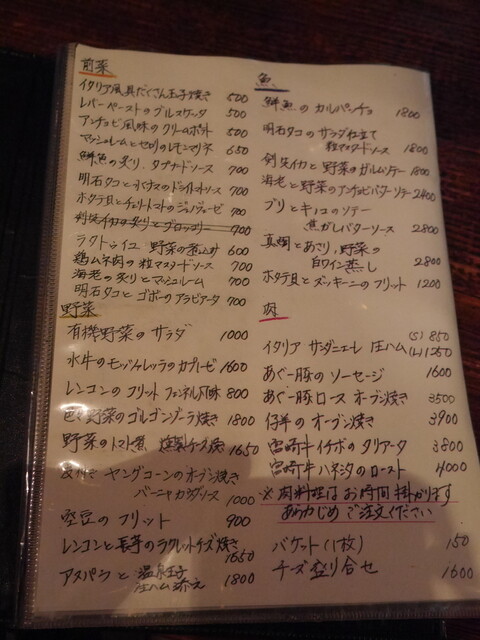 前菜
イタリア風具だくさん玉子焼き 500
レバーペーストのブルスケッタ 500
アンチョビ風味のクリームポテト 500
マッシュルームとセロリのレモンマリネ 650
鮮魚の炙り、タプナードソース 700
明石タコと水ナスのドライトマトソース 700
ホタテ貝とチェリートマトのジェノヴェーゼ 700
剣先イカの炙りとブロッコリー 700
ラタトゥイユ 野菜の煮込み 600
鶏ムネ肉の粒マスタードソース 700
海老の炙りとマッシュルーム 700
明石タコとゴボーのアラビアータ 700
野菜
有機野菜のサラダ 1000
水牛のモッツァレッラのカプレーゼ 1600
レンコンのフリット フェンネル風味 800
野菜のゴルゴンゾーラ焼き 1800
野菜のトマト煮 燻製チーズ焼 1650
皮付き ヤングコーンのオーブン焼き
バーニャカウダソース 1000
空豆のフリット 900
レンコンと長芋のラクレットチーズ焼き 1650
アスパラと 温泉玉子
生ハム添え 1800
魚
鮮魚のカルパッチョ 1800
明石タコのサラダ仕立て
粒マスタードソース 1800
剣先イカと野菜のガルムソテー 1800
海老と野菜のアンチョビバターソテー 2400
ブリとキノコのソテー
焦がしバターソース 2800
真鯛とあさり、野菜の
白ワイン蒸し 2800
ホタテ貝とズッキーニのフリット 1200
肉
イタリア サンダニエーレ 生ハム (S) 850
(L) 1250
あぐー豚のソーセージ 1600
あぐー豚ロース オーブン焼き 3500
仔羊のオーブン焼き 3900
宮崎牛イチボのタリアータ 3800
宮崎牛ハネシタのロースト 4000
※肉料理はお時間掛かります
あらかじめご注文ください
バケット(1枚) 150
チーズ盛り合せ 1600